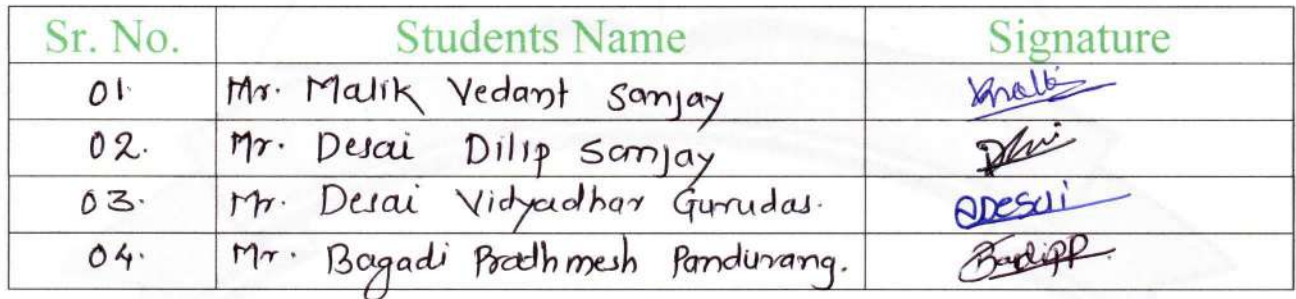 Sr. No. Students Name Signature
01. Mr. Malik Vedant Sanjay
02. Mr. Desai Dilip Sanjay
03. Mr. Desai Vidyadhar Gurudas. Desai
04. Mr. Bagadi Prathmesh Pandurang.